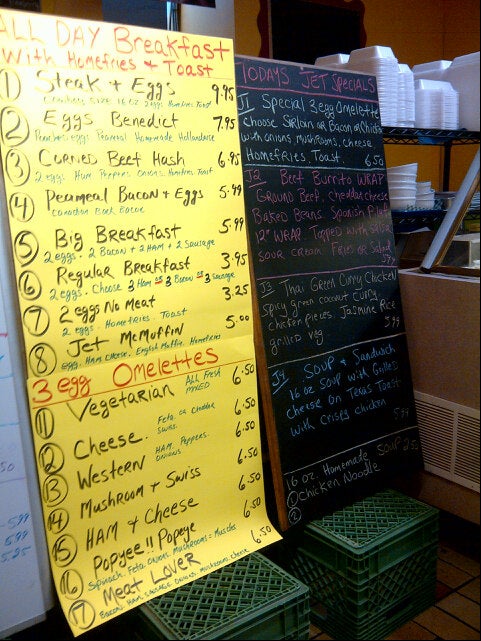 ALL DAY Breakfast
With Homefries + Toast
1 Steak + Eggs 9.95
16 oz 2 eggs Homefries Toast
2 Eggs Benedict 7.95
Poached eggs Peameal Homemade Hollandaise
3 Corned Beef Hash 6.95
2 eggs. Ham. Peppers. Onions. Homefries. Toast
4 Peameal Bacon + Eggs 5.99
Canadian Back Bacon
5 Big Breakfast 5.99
2 eggs - 2 Bacon + 2 Ham + 2 Sausage
6 Regular Breakfast 3.95
2 eggs. Choose 3 Ham or 3 Bacon or 3 Sausage
7 2 eggs No Meat 3.25
2 eggs. Homefries. Toast
8 Jet McMuffin 5.00
egg. Ham. cheese. English Muffin. Homefries
3 egg Omelettes
11 Vegetarian ALL Fresh 6.50
12 Cheese. Feta. or Cheddar Swiss 6.50
13 Western HAM. Peppers. Onions. 6.50
14 Mushroom + Swiss 6.50
15 HAM + Cheese 6.50
16 Popyee!! Popeye 6.50
Spinach. Feta. Onions. Mushrooms = Muscles
17 Meat Lover 6.50
Bacon. Ham. Sausage. Onions. mushrooms. cheese
TODAYS JET SPECIALS
J1 Special 3 egg Omelette
choose Sirloin or Bacon or Chicken
with onions mushrooms. cheese
Homefries. Toast. 6.50
J2 Beef Burrito WRAP
GROUND Beef. cheddar cheese
Baked Beans. Spanish
12" WRAP. Topped with salsa
sour cream. Fries or Salad
J3 Thai Green Curry Chicken
spicy green coconut curry
chicken pieces. Jasmine Rice
grilled veg 5.99
J4 SOUP & Sandwich
16 oz soup with Grilled
cheese on Texas Toast
with crispy chicken 5.99
16 oz. Homemade SOUP 2.50
1 Chicken Noodle
2
5.99
5.99
5.25